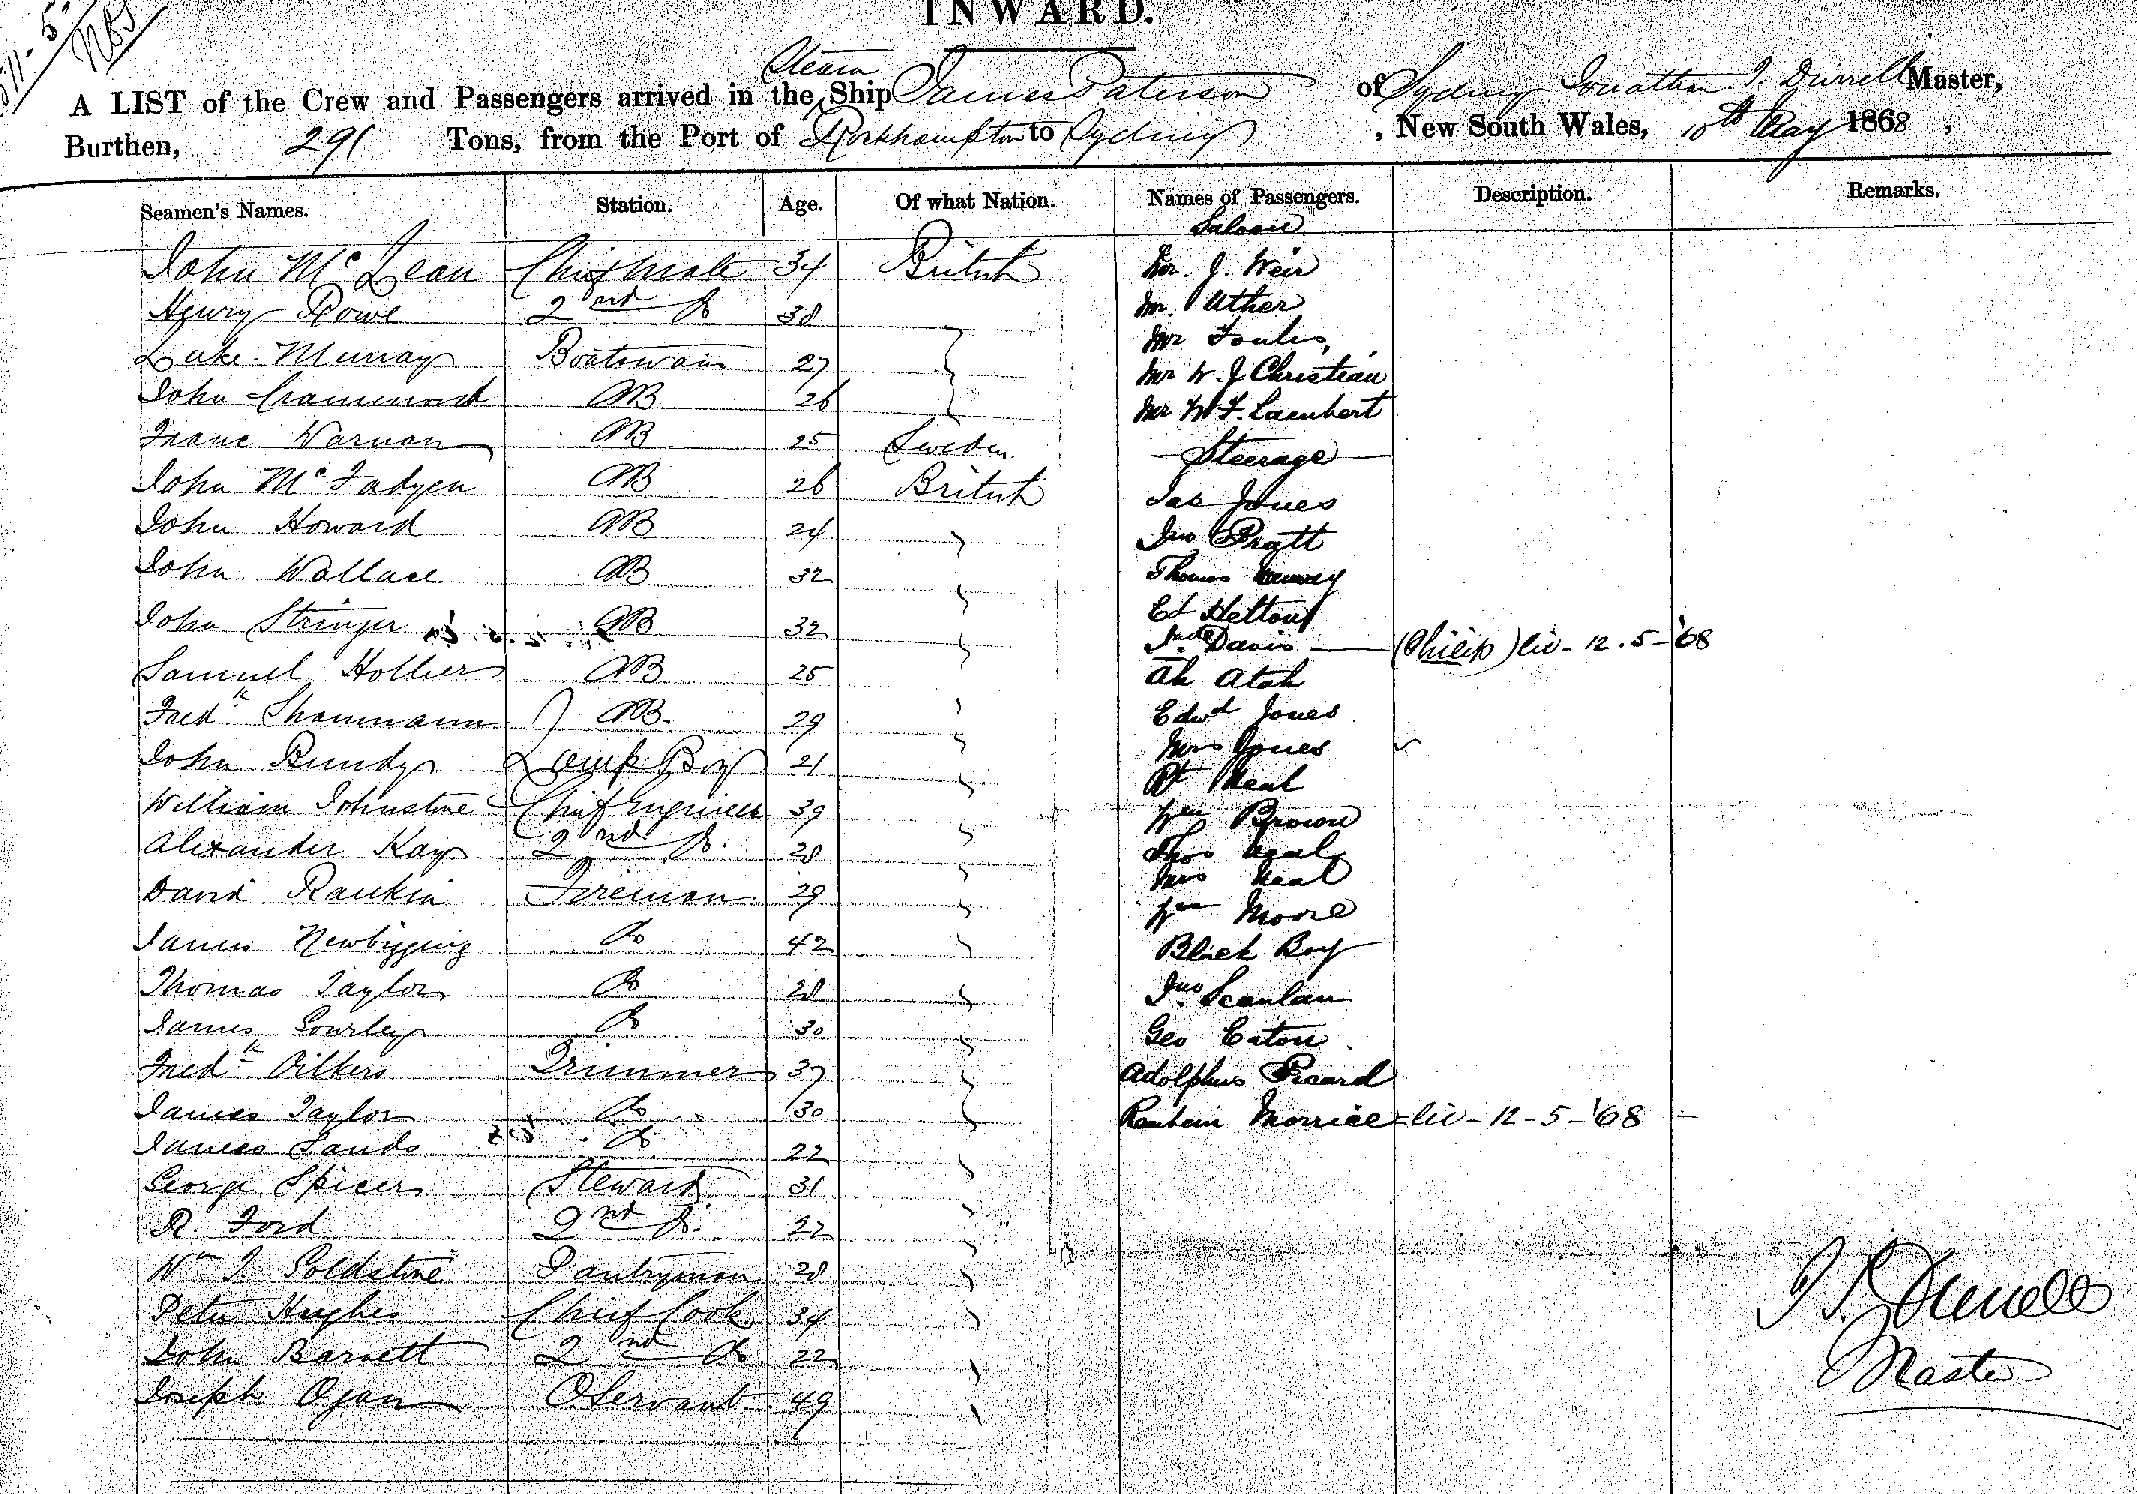 INWARD.
Steam
A LIST of the Crew and Passengers arrived in the Ship James Paterson of Sydney Jonathan J. Durrell Master,
Burthen, 291 Tons, from the Port of Rockhampton to Sydney, New South Wales, 10th May 1868,
Seamen's Names. Station. Age. Of what Nation. Names of Passengers. Description. Remarks.
Saloon
John McLean Chief Mate 34 British Dr. J. Weir
Henry Rowe 2nd Do 38 Mr. Uther
Luke Murray Boatswain 27 Mr
John AB 26 Mr W. J Christian
AB 25 Sweden Mr W. F. Lambert
Steerage
John McFadyen AB 26 British Jas Jones
John Howard AB 24 Jno Pratt
John Wallace AB 32 Thomas
John Stringer AB 32 Ed
Davis (Chiells) liv - 12.5-'68
Samuel Hollier AB 25 Ah Atah
Fredk AB. 29 Edwd Jones
Mrs Jones
John Bundy Lamp Boy 21 Rt Neal
William Johnstone Chief Engineer 39 Wm Brown
Alexander Kay 2nd Do. 28 Thos Neal
Mrs Neal
David Rankin Fireman 29 Wm Moore
James Newbigging Do 42 Black Boy
Thomas Taylor Do 28 Jno Scanlan
James Gourley Do 30 Geo Eaton
Fredk Trimmer 37 Adolphus Picard
James Taylor Do 30 Reuben Morrice - liv - 12-5-'68
James Sands Do 22
George Spicer Steward 31
R. Ford 2nd Do. 22
Wm J. Goldstone Pantryman 28
Peter Hughes Chief Cook 34
John Barnett 2nd Do 22
Joseph Ogan O Servant 49
J. J. Durrell
Master